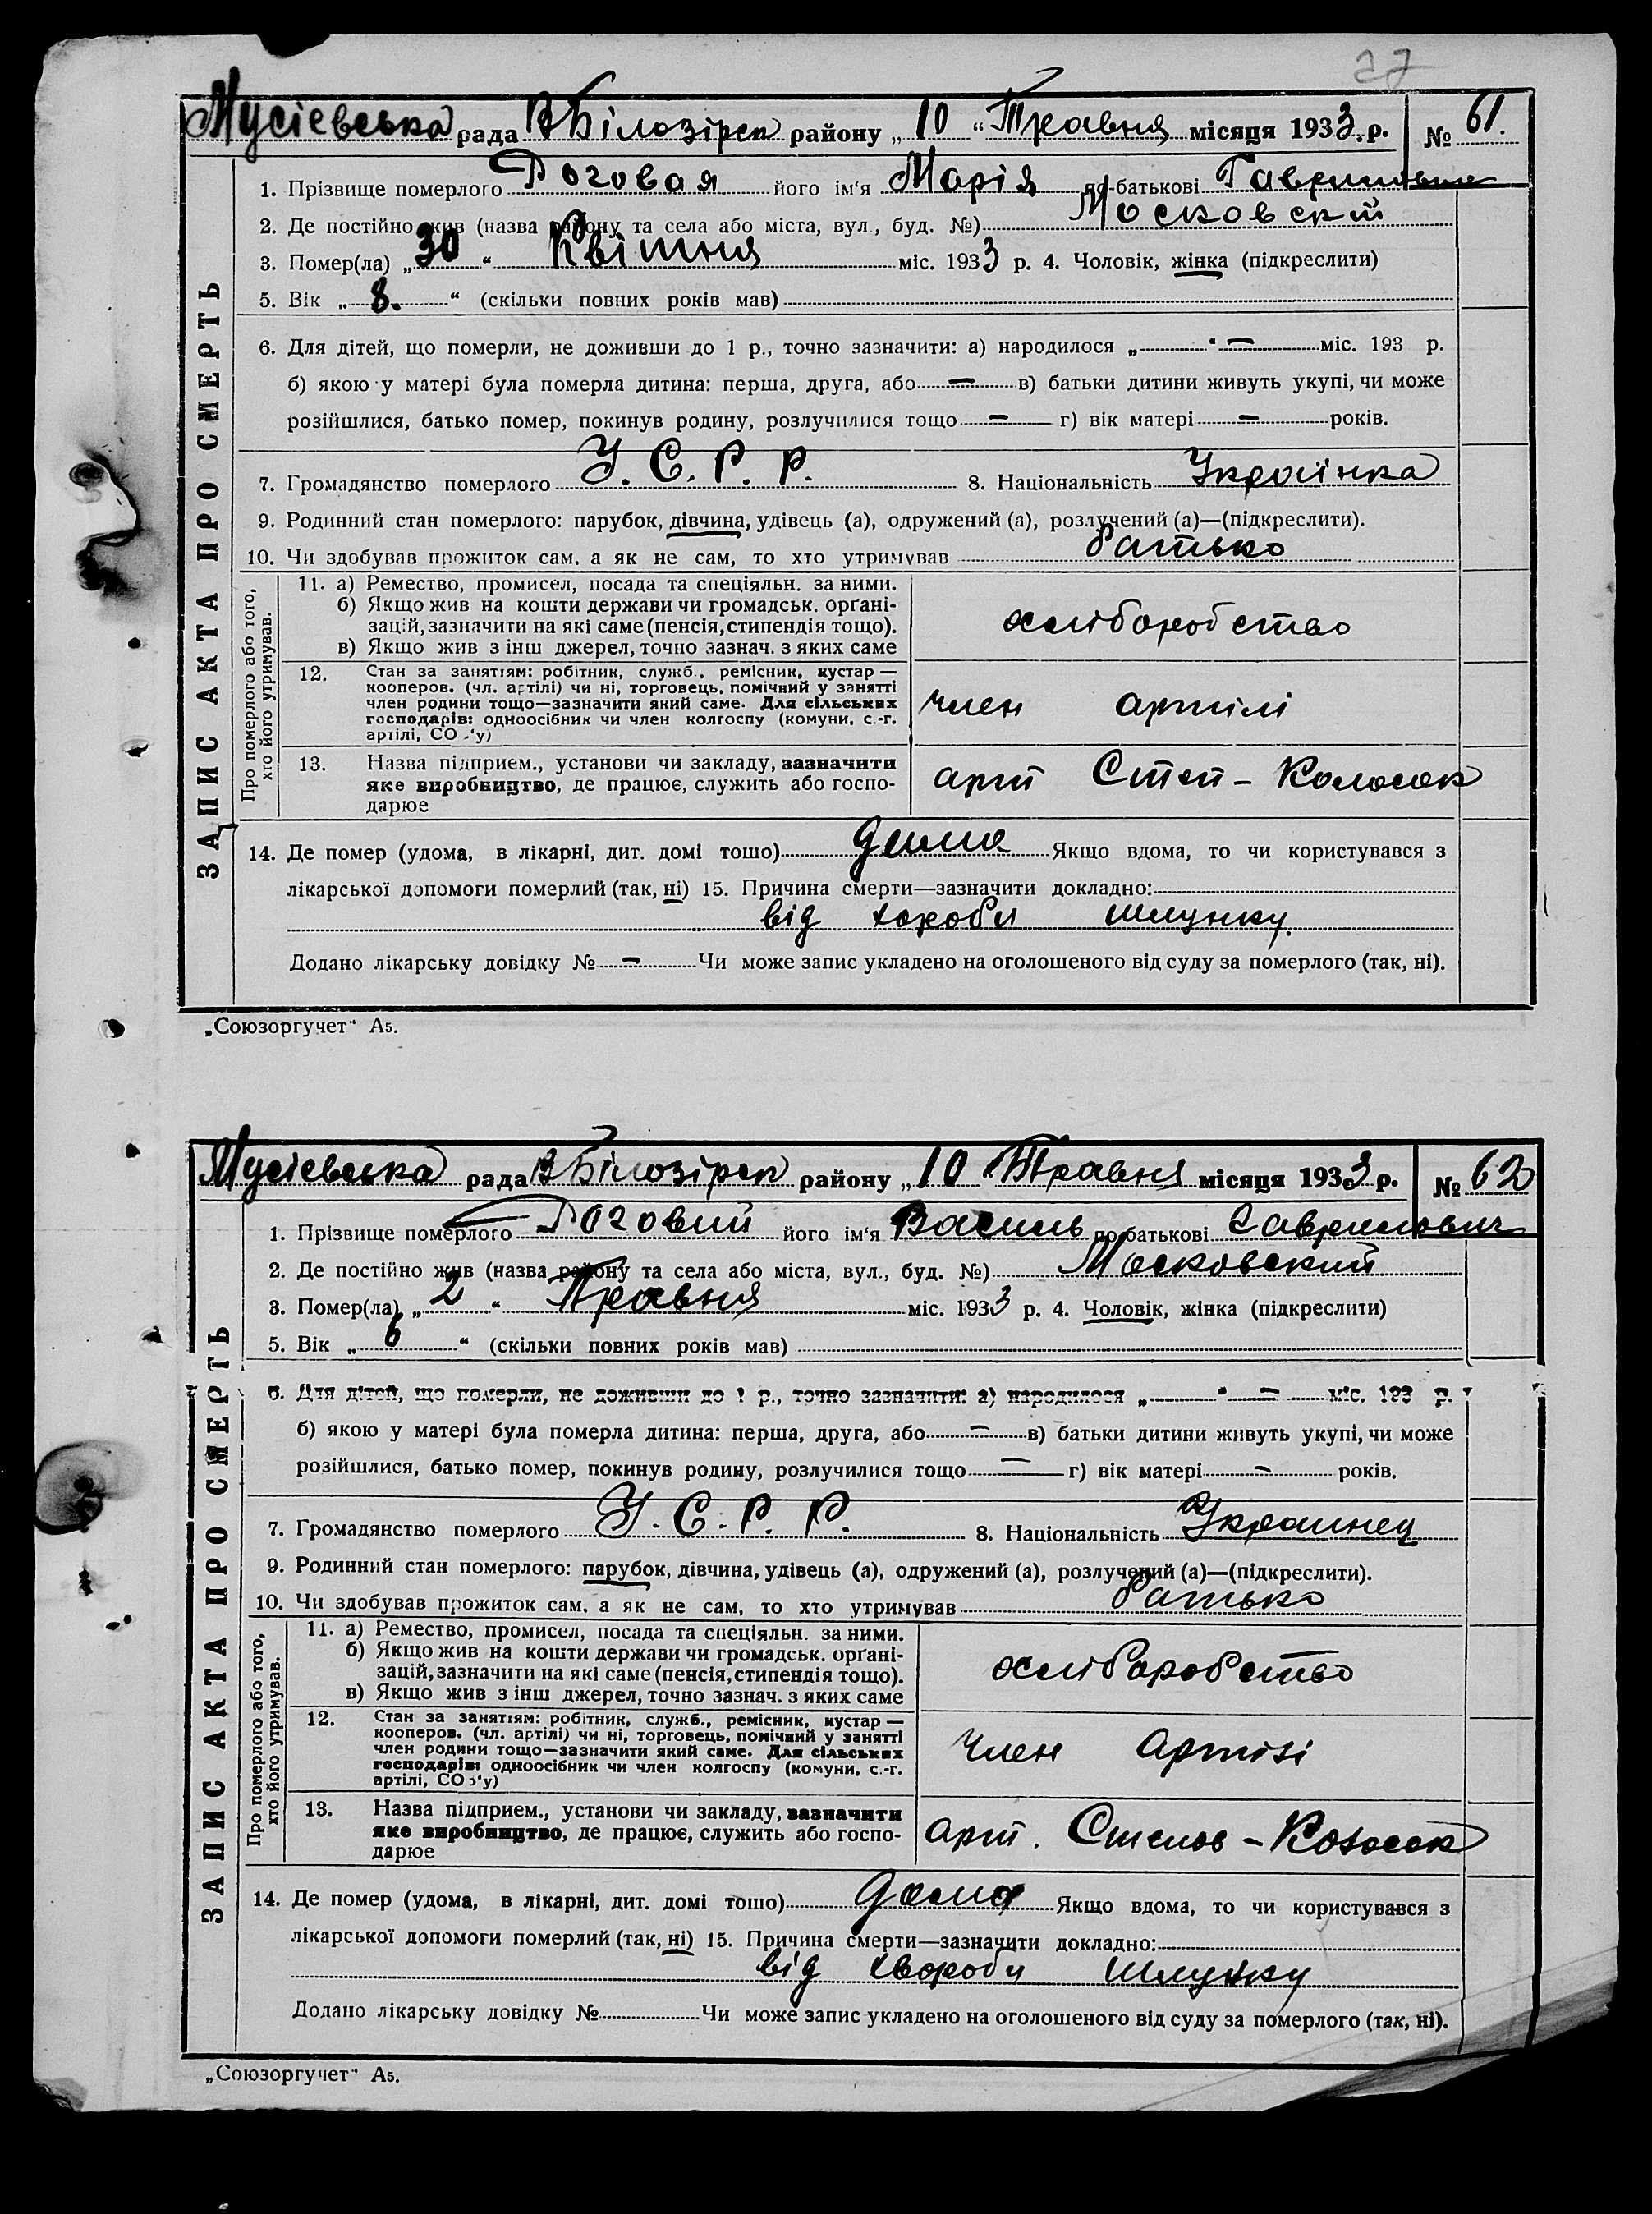 27
Мусієвська рада В Білозірск району „ 10 “ Травня місяця 1933 р. № 61.
1. Прізвище померлого Роговая його ім‘я Марія по-батькові
2. Де постійно жив (назва району та села або міста, вул., буд. №) Московский
3. Помер(ла) „ 30 “ Квітня міс. 1933 р. 4. Чоловік, жінка (підкреслити)
5. Вік „ 8. “ (скільки повних років мав)
6. Для дітей, що померли, не доживши до 1 р., точно зазначити: а) народилося „ “ — міс. 193 р.
б) якою у матері була померла дитина: перша, друга, або — в) батьки дитини живуть укупі, чи може
розійшлися, батько помер, покинув родину, розлучилися тощо — г) вік матері — років.
7. Громадянство померлого У. С. Р. Р. 8. Національність Українка
9. Родинний стан померлого: парубок, дівчина, удівець (а), одружений (а), розлучений (а)—(підкреслити).
10. Чи здобував прожиток сам, а як не сам, то хто утримував батько
ЗАПИС АКТА ПРО СМЕРТЬ
Про померлого або того,
хто його утримував.
11. а) Ремество, промисел, посада та спеціяльн. за ними.
б) Якщо жив на кошти держави чи громадськ. орґані-
зацій, зазначити на які саме (пенсія, стипендія тощо).
в) Якщо жив з інш джерел, точно зазнач. з яких саме
хліборобство
12. Стан за занятіям: робітник, служб., ремісник, кустар—
кооперов. (чл. артілі) чи ні, торговець, помічний у занятті
член родини тощо—зазначити який саме. Для сільських
господарів: одноосібник чи член колгоспу (комуни, с.-г.
артілі, СОЗ‘у)
член артілі
13. Назва підприєм., установи чи закладу, зазначити
яке виробництво, де працює, служить або госпо-
дарює
арт Степ - Колосок
14. Де помер (удома, в лікарні, дит. домі тошо) дома Якщо вдома, то чи користувався з
лікарської допомоги померлий (так, ні) 15. Причина смерти—зазначити докладно:
від хороби шлунку.
Додано лікарську довідку № — Чи може запис укладено на оголошеного від суду за померлого (так, ні).
„Союзоргучет“ А5.
Мусієвська рада В Білозірск району „ 10 “ Травня місяця 1933 р. № 62
1. Прізвище померлого Роговий його ім‘я Василь по-батькові Гаврилович
2. Де постійно жив (назва району та села або міста, вул., буд. №) Московский
3. Помер(ла) „ 2 “ Травня міс. 1933 р. 4. Чоловік, жінка (підкреслити)
5. Вік „ 6 “ (скільки повних років мав)
6. Для дітей, що померли, не доживши до 1 р., точно зазначити: а) народилося „ “ — міс. 193 р.
б) якою у матері була померла дитина: перша, друга, або — в) батьки дитини живуть укупі, чи може
розійшлися, батько помер, покинув родину, розлучилися тощо — г) вік матері — років.
7. Громадянство померлого У. С. Р. Р. 8. Національність Украинец
9. Родинний стан померлого: парубок, дівчина, удівець (а), одружений (а), розлучений (а)—(підкреслити).
10. Чи здобував прожиток сам, а як не сам, то хто утримував батько
ЗАПИС АКТА ПРО СМЕРТЬ
Про померлого або того,
хто його утримував.
11. а) Ремество, промисел, посада та спеціяльн. за ними.
б) Якщо жив на кошти держави чи громадськ. орґані-
зацій, зазначити на які саме (пенсія, стипендія тощо).
в) Якщо жив з інш джерел, точно зазнач. з яких саме
хліборобство
12. Стан за занятіям: робітник, служб., ремісник, кустар—
кооперов. (чл. артілі) чи ні, торговець, помічний у занятті
член родини тощо—зазначити який саме. Для сільських
господарів: одноосібник чи член колгоспу (комуни, с.-г.
артілі, СОЗ‘у)
член артілі
13. Назва підприєм., установи чи закладу, зазначити
яке виробництво, де працює, служить або госпо-
дарює
арт. Степов - Колосок
14. Де помер (удома, в лікарні, дит. домі тошо) дома Якщо вдома, то чи користувався з
лікарської допомоги померлий (так, ні) 15. Причина смерти—зазначити докладно:
від хвороби шлунку
Додано лікарську довідку № Чи може запис укладено на оголошеного від суду за померлого (так, ні).
„Союзоргучет“ А5.